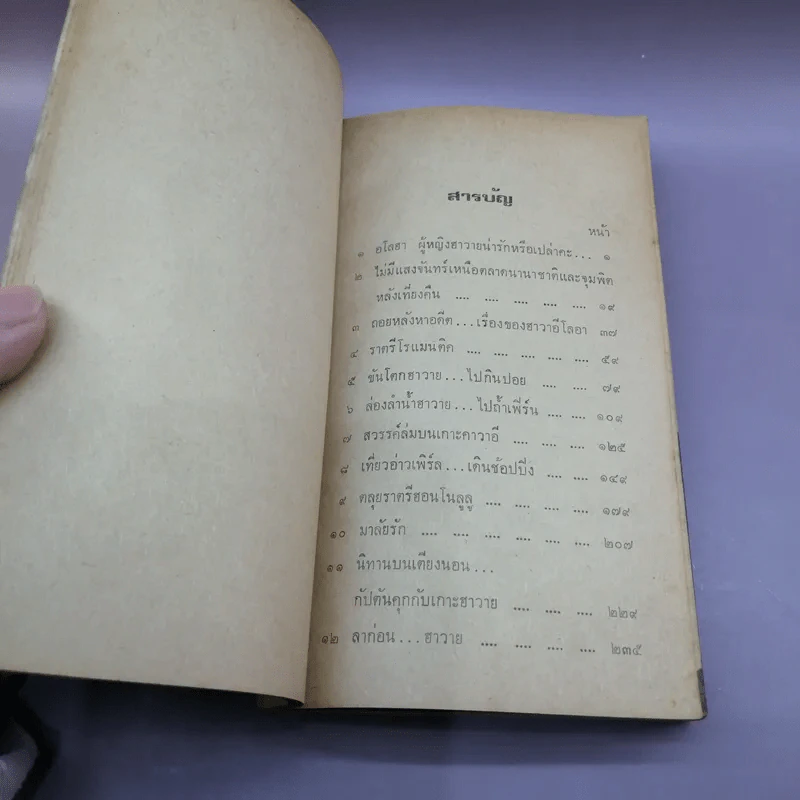 สารบัญ
หน้า
๑ อโลฮา ผู้หญิงฮาวายน่ารักหรือเปล่าคะ... ๑
๒ ไม่มีแสงจันทร์เหนือตลาดนานาชาติและจุมพิต
หลังเที่ยงคืน .... .... .... .... .... ๑๙
๓ ถอยหลังหาอดีต...เรื่องของฮาวายอีโลอา ๓๗
๔ ราตรีโรแมนติค .... .... .... .... .... ๕๙
๕ ขันโตกฮาวาย...ไปกินปอย .... .... ๗๙
๖ ล่องลำน้ำฮาวาย...ไปถ้ำเฟิร์น .... .... ๑๐๙
๗ สวรรค์ล่มบนเกาะคาวาอี .... .... .... ๑๒๕
๘ เที่ยวอ่าวเพิร์ล...เดินช้อปปิ้ง .... .... ๑๔๙
๙ ตลุยราตรีฮอนโนลูลู .... .... .... .... ๑๗๙
๑๐ มาลัยรัก .... .... .... .... .... .... ๒๐๗
๑๑ นิทานบนเตียงนอน...
กัปตันคุกกับเกาะฮาวาย .... .... .... ๒๒๙
๑๒ ลาก่อน...ฮาวาย .... .... .... .... ๒๓๕